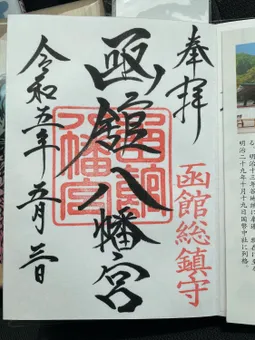 奉拝
函館総鎮守
函館八幡宮
函館八幡宮
令和五年五月三日
明治二十九年十月十九日国幣中社に列格。